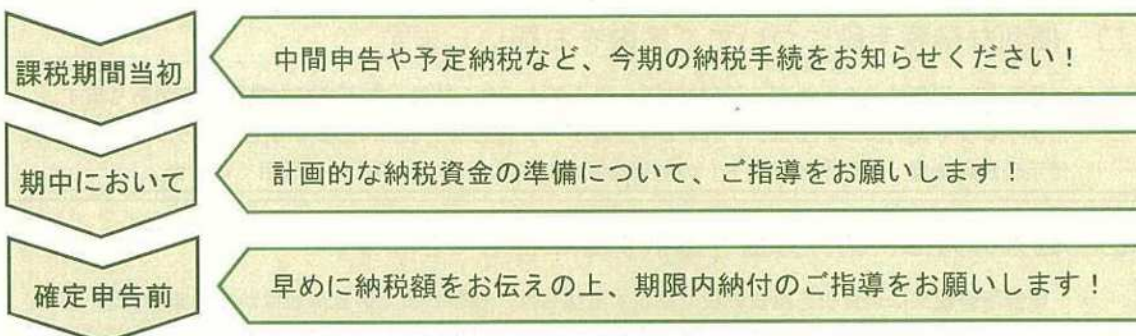 課税期間当初
中間申告や予定納税など、今期の納税手続をお知らせください！
期中において
計画的な納税資金の準備について、ご指導をお願いします！
確定申告前
早めに納税額をお伝えの上、期限内納付のご指導をお願いします！